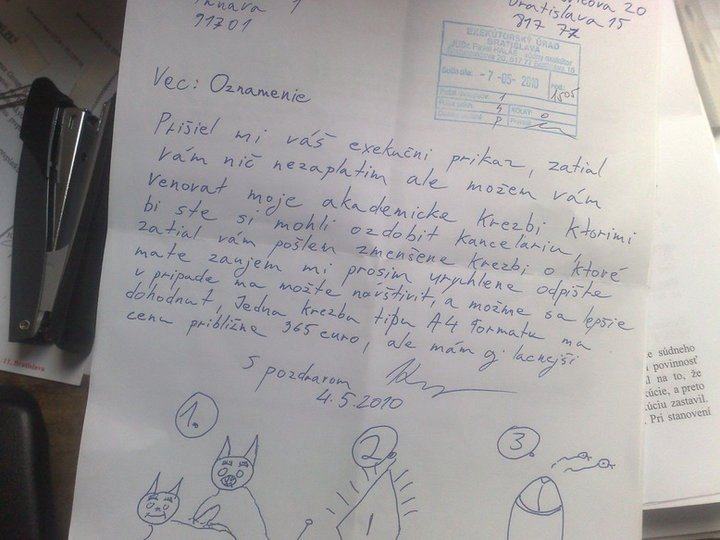 Trnava 1
91701
20
Bratislava 15
817 77
EXEKÚTORSKÝ ÚRAD
BRATISLAVA
-7-05-2010
1505
Vec: Oznamenie
Prišiel mi váš exekučni prikaz, zatial
vám nič nezaplatim ale možem vám
venovat moje akademicke krezbi ktorimi
bi ste si mohli ozdobit kancelariu,
zatial vám pošlem zmenšene krezbi o ktoré
mate zaujem mi prosim urychlene odpište
v pripade ma možte novštivit, a možme sa lepšie
dohodnut, Jedna krezba tipu A4 formatu ma
cenu približne 365 euro, ale mám aj lacnejši
S pozdravom
4.5.2010
1. 2. 3.
11. Bratislava
te súdneho
povinnosť
l na to, že
kúcie, a preto
kúciu zastavil.
Pri stanovení